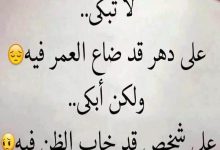 لا تبكى..
على دهر قد ضاع العمر فيه😔
ولكن أبكى..
على شخص قد خاب الظن فيه😔